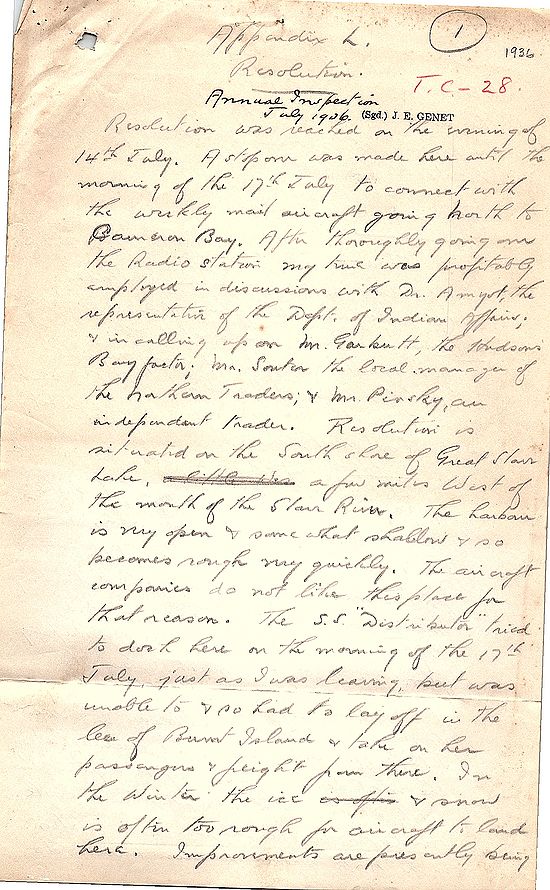 Appendix L.
1
1936
Resolution.
T.C-28.
Annual Inspection
July 1936. (Sgd.) J. E. GENET
Resolution was reached on the evening of
14th July. A stop over was made here until the
morning of the 17th July to connect with
the weekly mail aircraft going North to
Cameron Bay. After thoroughly going over
the Radio station my time was profitably
employed in discussions with Dr. Amyot, the
representative of the Dept. of Indian Affairs;
& in calling upon Mr. Garbutt, the Hudsons
Bay factor; Mr. Souter the local manager of
the Northern Traders; & Mr. Pinsky, an
independant trader. Resolution is
situated on the South shore of Great Slave
Lake, a few miles West of
the mouth of the Slave River. The harbour
is very open & some what shallow & so
becomes rough very quickly. The aircraft
companies do not like this place for
that reason. The S.S. "Distributor" tried
to dock here on the morning of the 17th
July, just as I was leaving, but was
unable to & so had to lay off in the
lee of Burnt Island & take on her
passengers & freight from there. In
the Winter the ice & snow
is often too rough for aircraft to land
here. Improvments are presently being